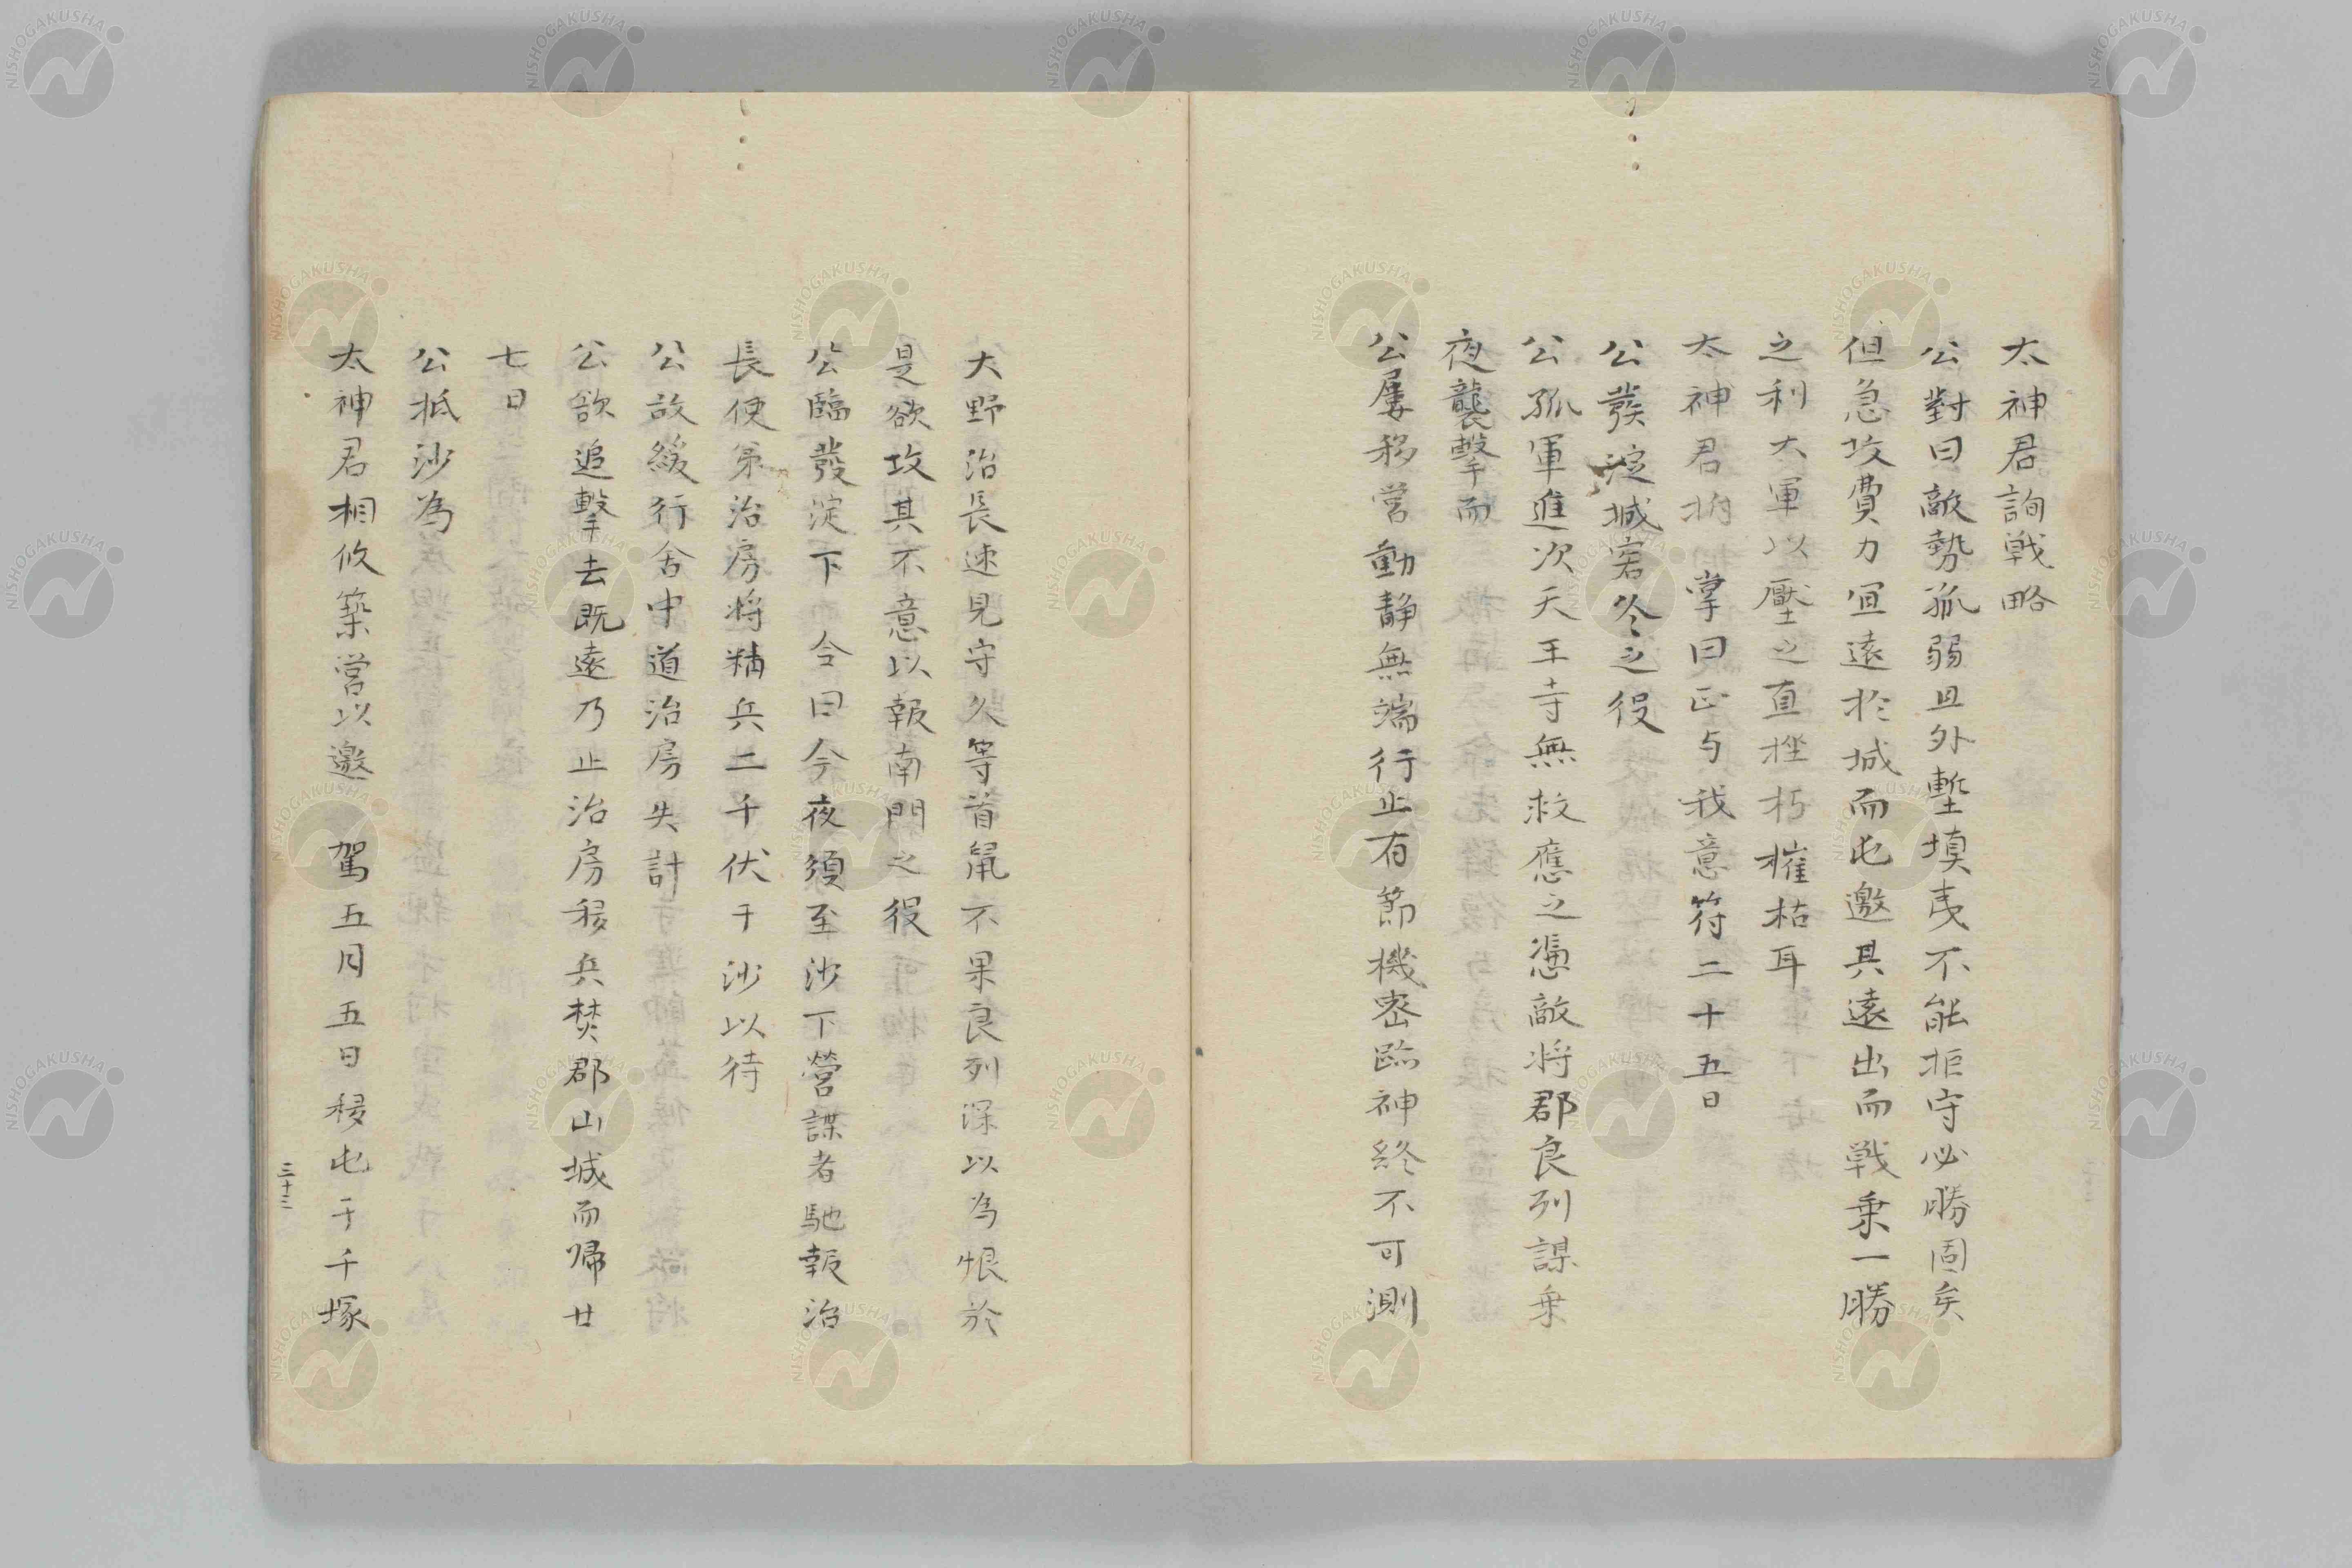 太神君詢戦略
公對曰敵勢孤弱且外塹填夷不能拒守必勝固矣
但急攻費力宜遠於城而屯邀其遠出而戦乗一勝
之利大軍以壓之直拉朽摧枯耳
太神君拊 掌曰正与我意符二十五日
公発淀城寄令之役
公孤軍進次天王寺無救應之憑敵将郡良列謀乗
夜襲撃而
公屢移営動静無端行止有節機密臨神終不可測
大野治長速見守久等首鼠不果良列深以為恨於
是欲攻其不意以報南門之役
公臨發淀下 令曰今夜須至沙下營諜者馳報治
長使弟治房将精兵二千伏于沙以待
公故緩行舎中道治房失計
公欲追撃去既遠乃止治房移兵焚郡山城而帰廿
七日
公抵沙為
太神君相攸築営以邀 駕五月五日移屯于千塚
三十三
NISHOGAKUSHA